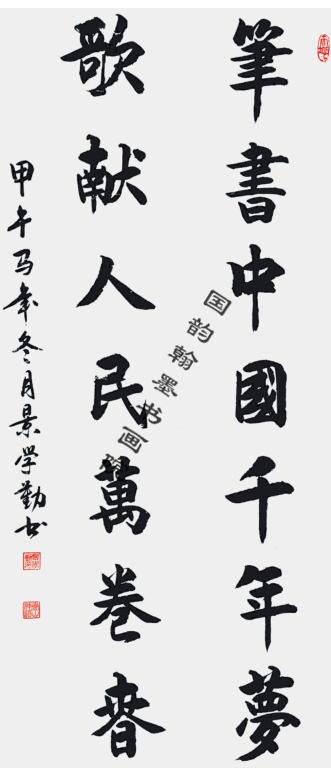 筆書中國千年夢
歌献人民萬卷春
甲午马年冬月景学勤书
国韵翰墨书画院